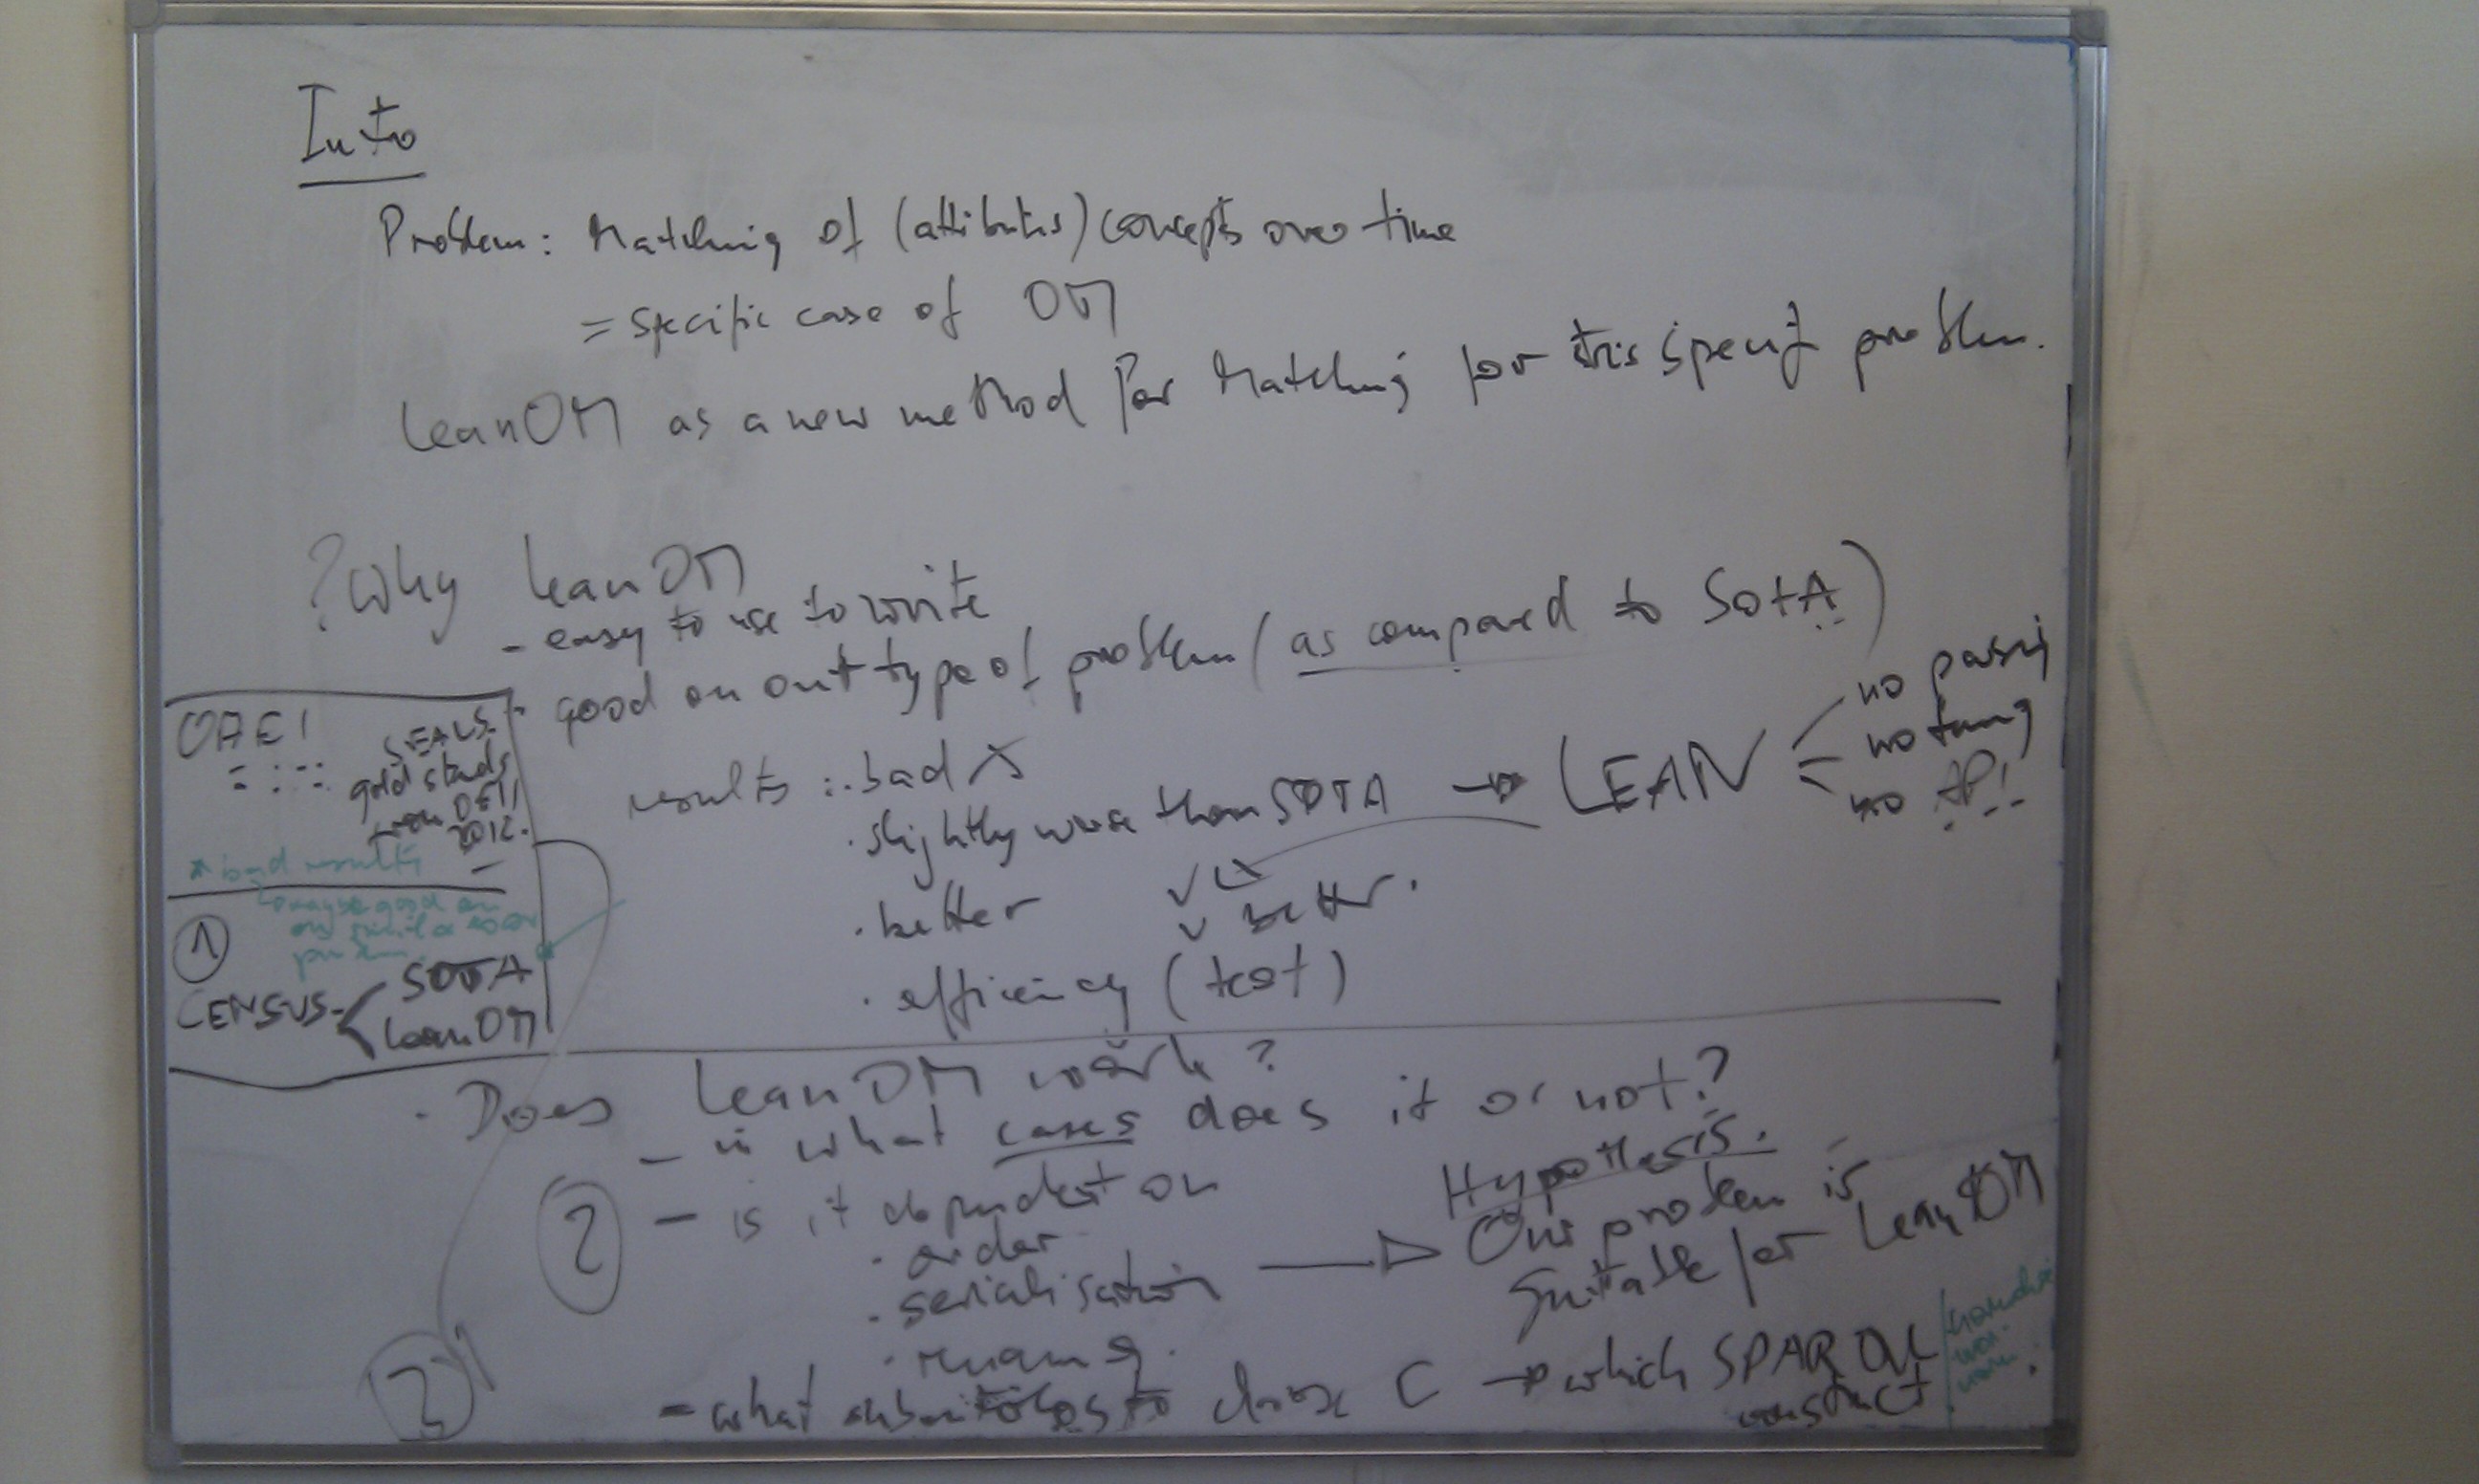 Intro
Problem: Matching of (attributes) concepts over time
= specific case of OM
LeanOM as a new method for Matching for this specif problem.
? Why LeanOM
- easy to use to write
- good on out type of problem (as compared to SotA)
results : . bad X
. slightly worse than SOTA → LEAN
no parsing
no tuning
no API
. better ✓
✓ better.
. efficiency (test)
OAEI
SEALS
gold stands
from OEII
2012.
* bad results
maybe good on
①
CENSUS - < SOTA
LeanOM
. Does LeanOM work?
- in what cases does it or not?
② - is it dependent on
. order
. serialisation
. renaming.
→ Hypothesis.
Our problem is
suitable for LeanOM
- what to choose C → which SPARQL
construct